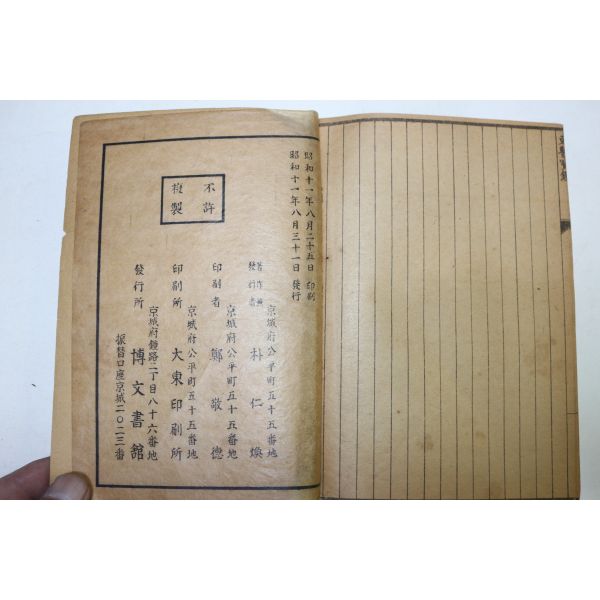 昭和十一年八月二十五日 印刷
昭和十一年八月三十一日 發行
不許
複製
京城府公平町五十五番地
著作兼
發行者 朴仁煥
京城府公平町五十五番地
印刷者 鄭敬德
京城府公平町五十五番地
印刷所 大東印刷所
京城府鍾路二丁目八十六番地
發行所 博文書舘
振替口座京城二〇二三番